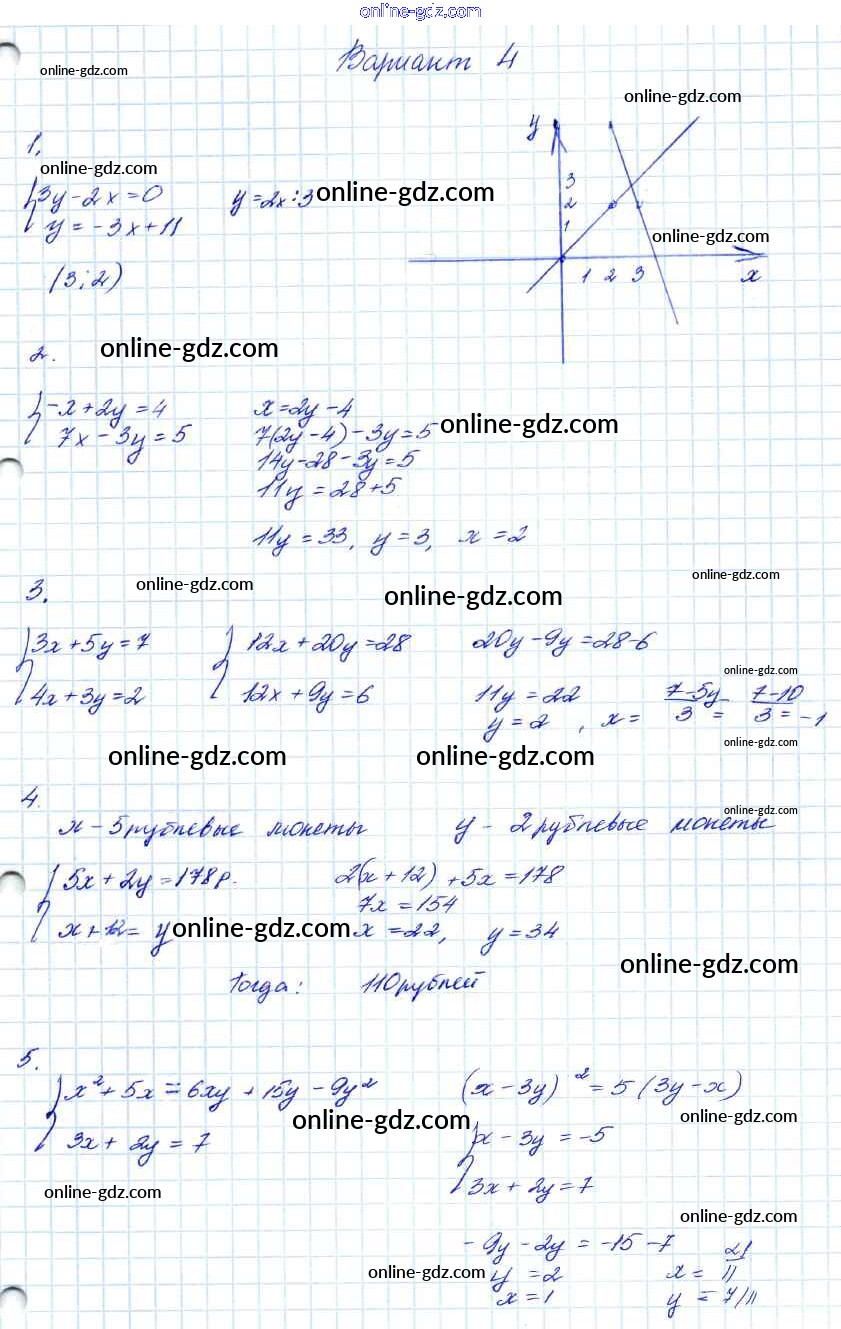 online-gdz.com
Вариант 4
online-gdz.com
online-gdz.com
1.
online-gdz.com
3y - 2x = 0 y = 2x : 3 online-gdz.com
y = -3x + 11
(3; 2)
y
3
2
1
online-gdz.com
1 2 3 x
2. online-gdz.com
-x + 2y = 4 x = 2y - 4
7x - 3y = 5 7(2y - 4) - 3y = 5 online-gdz.com
14y - 28 - 3y = 5
11y = 28 + 5
11y = 33, y = 3, x = 2
3. online-gdz.com online-gdz.com online-gdz.com
3x + 5y = 7 12x + 20y = 28 20y - 9y = 28 - 6
online-gdz.com
4x + 3y = 2 12x + 9y = 6 11y = 22
y = 2, x = 7-5y/3 = 7-10/3 = -1
online-gdz.com online-gdz.com online-gdz.com
4.
online-gdz.com
x - 5 рублевые монеты y - 2 рублевые монеты
5x + 2y = 178 р. 2(x + 12) + 5x = 178
7x = 154
x + 12 = y online-gdz.com x = 22, y = 34
online-gdz.com
Тогда: 110 рублей
5.
x² + 5x = 6xy + 15y - 9y² (x - 3y)² = 5(3y - x)
online-gdz.com online-gdz.com
3x + 2y = 7 x - 3y = -5
online-gdz.com 3x + 2y = 7
online-gdz.com
-9y - 2y = -15 - 7
online-gdz.com y = 2 x = 21/11
x = 1 y = 7/11